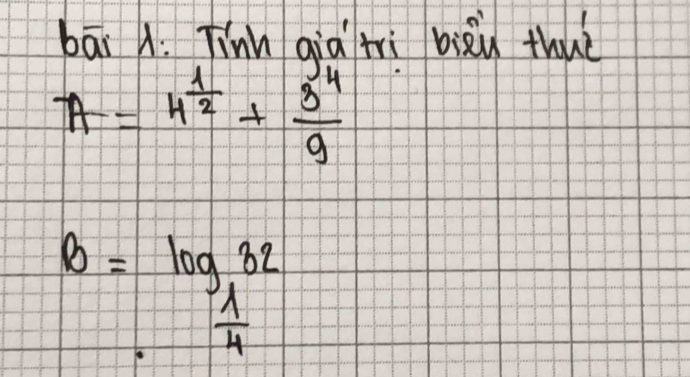 bài 1: Tính giá trị biểu thức
A = 4^{\frac{1}{2}} + \frac{3^4}{9}
B = log_{\frac{1}{4}} 32